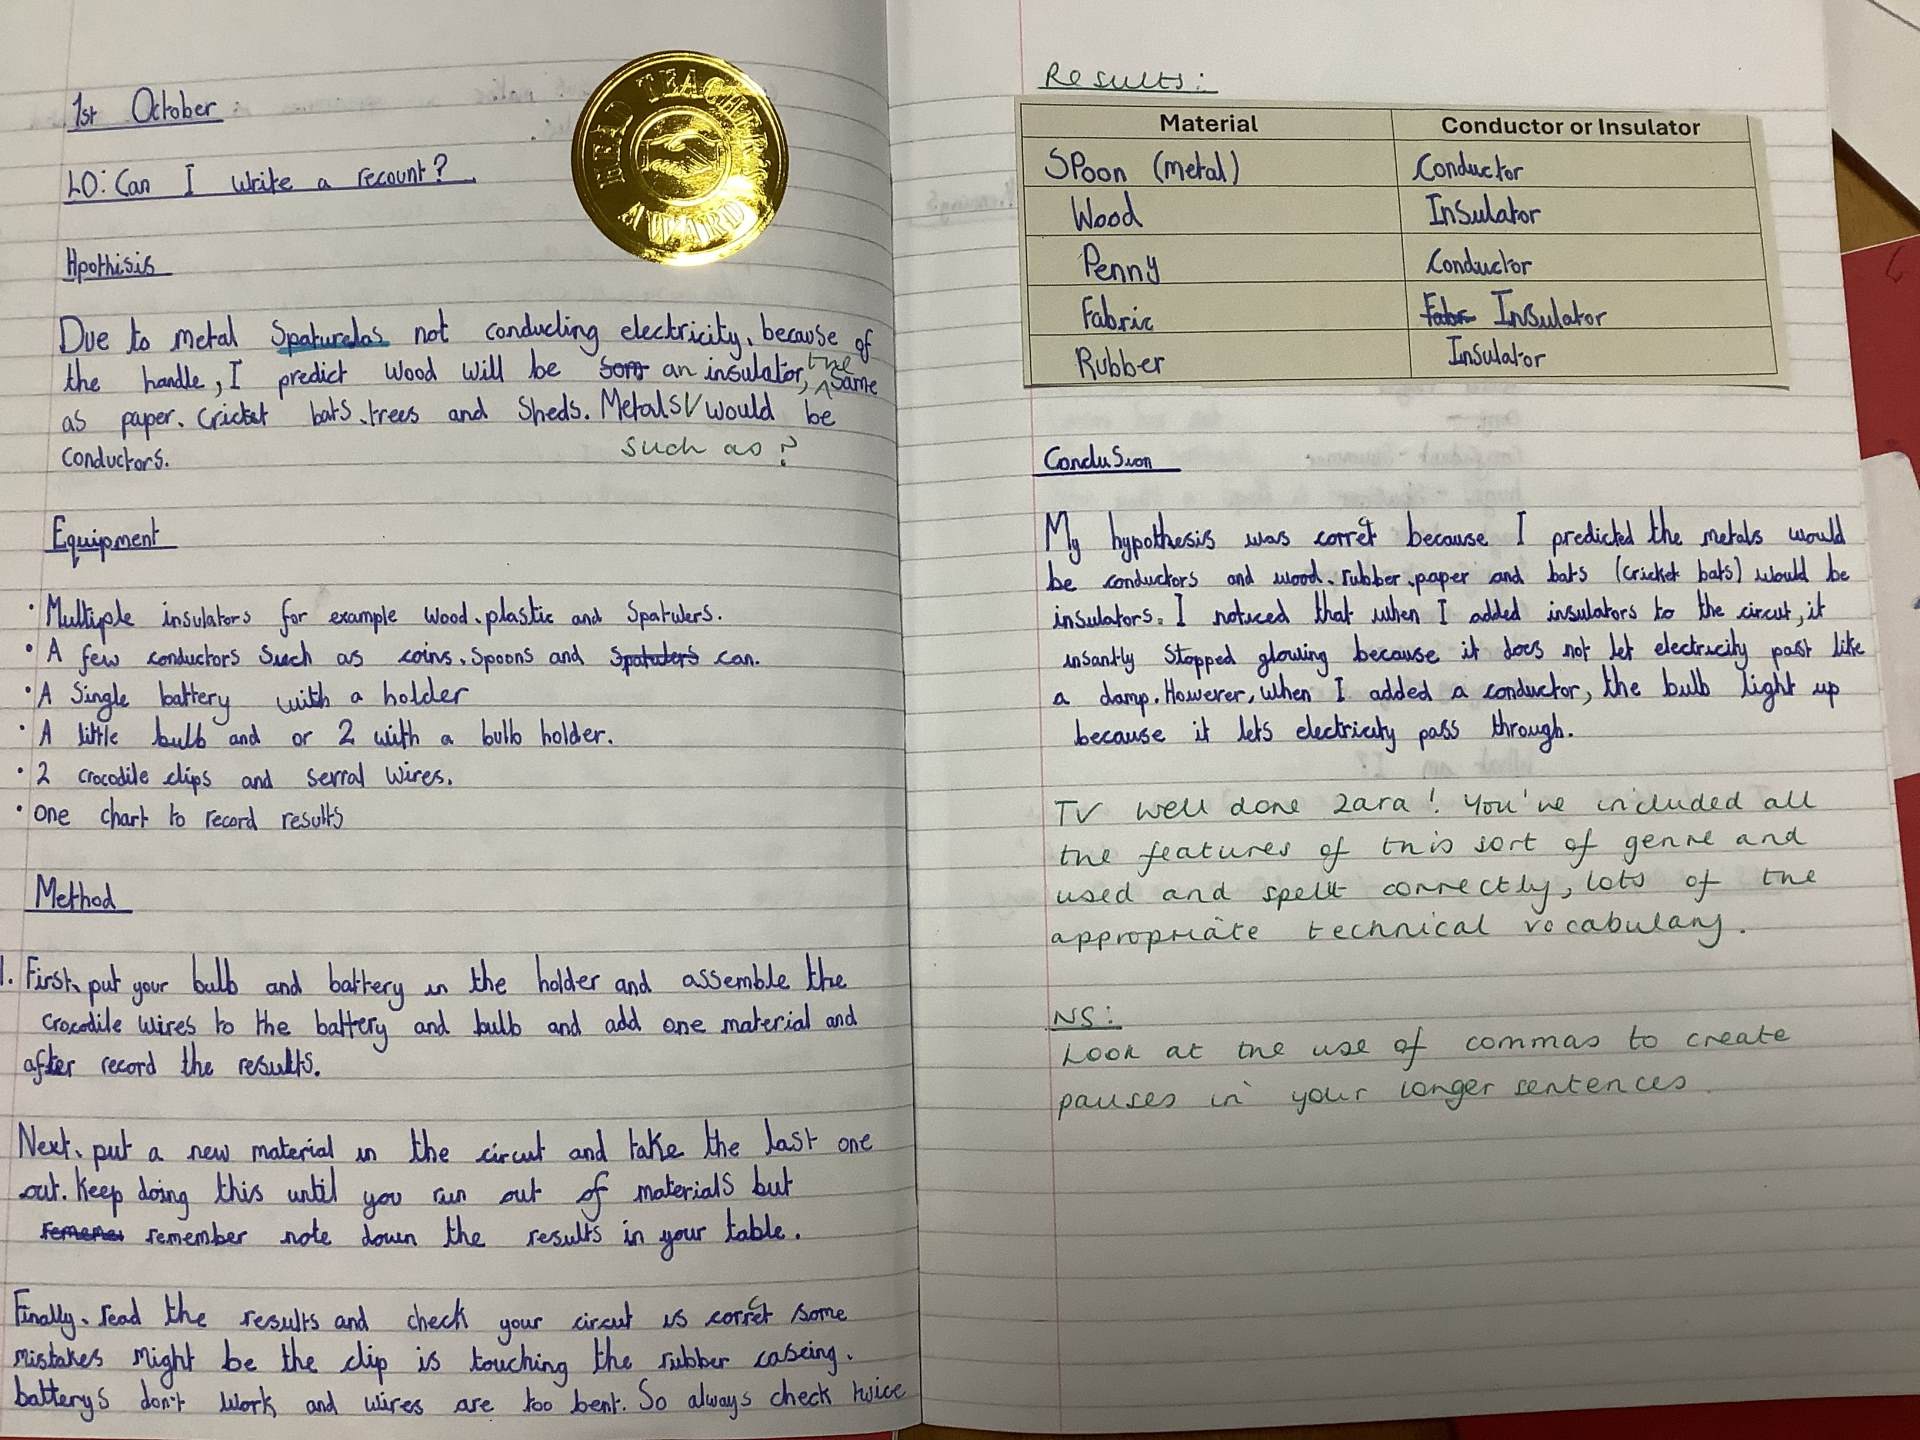 1st October
LO: Can I write a recount?
HEAD TEACHER'S
AWARD
Hpothisis
Due to metal Spaturelas not conducting electricity, because of
the handle, I predict wood will be som an insulator, the same
as paper, cricket bats, trees and sheds. Metals would be
such as?
conductors.
Equipment
• Multiple insulators for example wood, plastic and Spatulers.
• A few conductors such as coins, spoons and spatulers can.
• A single battery with a holder
• A little bulb and or 2 with a bulb holder.
• 2 crocodile clips and serral wires.
• one chart to record results
Method
1. First, put your bulb and battery in the holder and assemble the
crocodile wires to the battery and bulb and add one material and
after record the results.
Next, put a new material in the circut and take the last one
out. Keep doing this until you run out of materials but
remener remember note down the results in your table.
Finally, read the results and check your circut is correct some
mistakes might be the clip is touching the rubber caseing,
batterys don't work and wires are too bent. So always check twice
Results:
Material Conductor or Insulator
Spoon (metal) Conductor
Wood Insulator
Penny Conductor
Fabric Fabr Insulator
Rubber Insulator
Conclusion
My hypothesis was correct because I predicted the metals would
be conductors and wood, rubber, paper and bats (cricket bats) would be
insulators. I noticed that when I added insulators to the circut, it
insantly stopped glowing because it does not let electricity past like
a damp. However, when I added a conductor, the bulb light up
because it lets electricity pass through.
TV Well done Zara! You've included all
the features of this sort of genre and
used and spelt correctly, lots of the
appropriate technical vocabulary.
NS:
Look at the use of commas to create
pauses in your longer sentences.